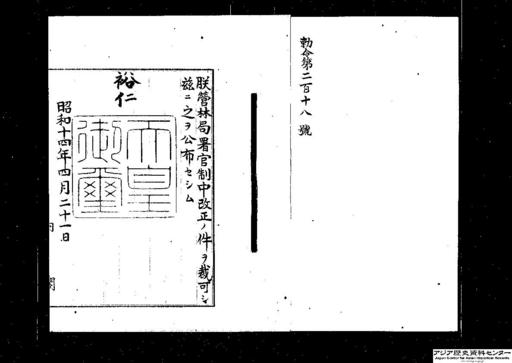 勅令第二百十八號
朕營林局署官制中改正ノ件ヲ裁可シ
茲ニ之ヲ公布セシム
裕仁
天皇
御璽
昭和十四年四月二十一日
内閣
アジア歴史資料センター
Japan Center for Asian Historical Records